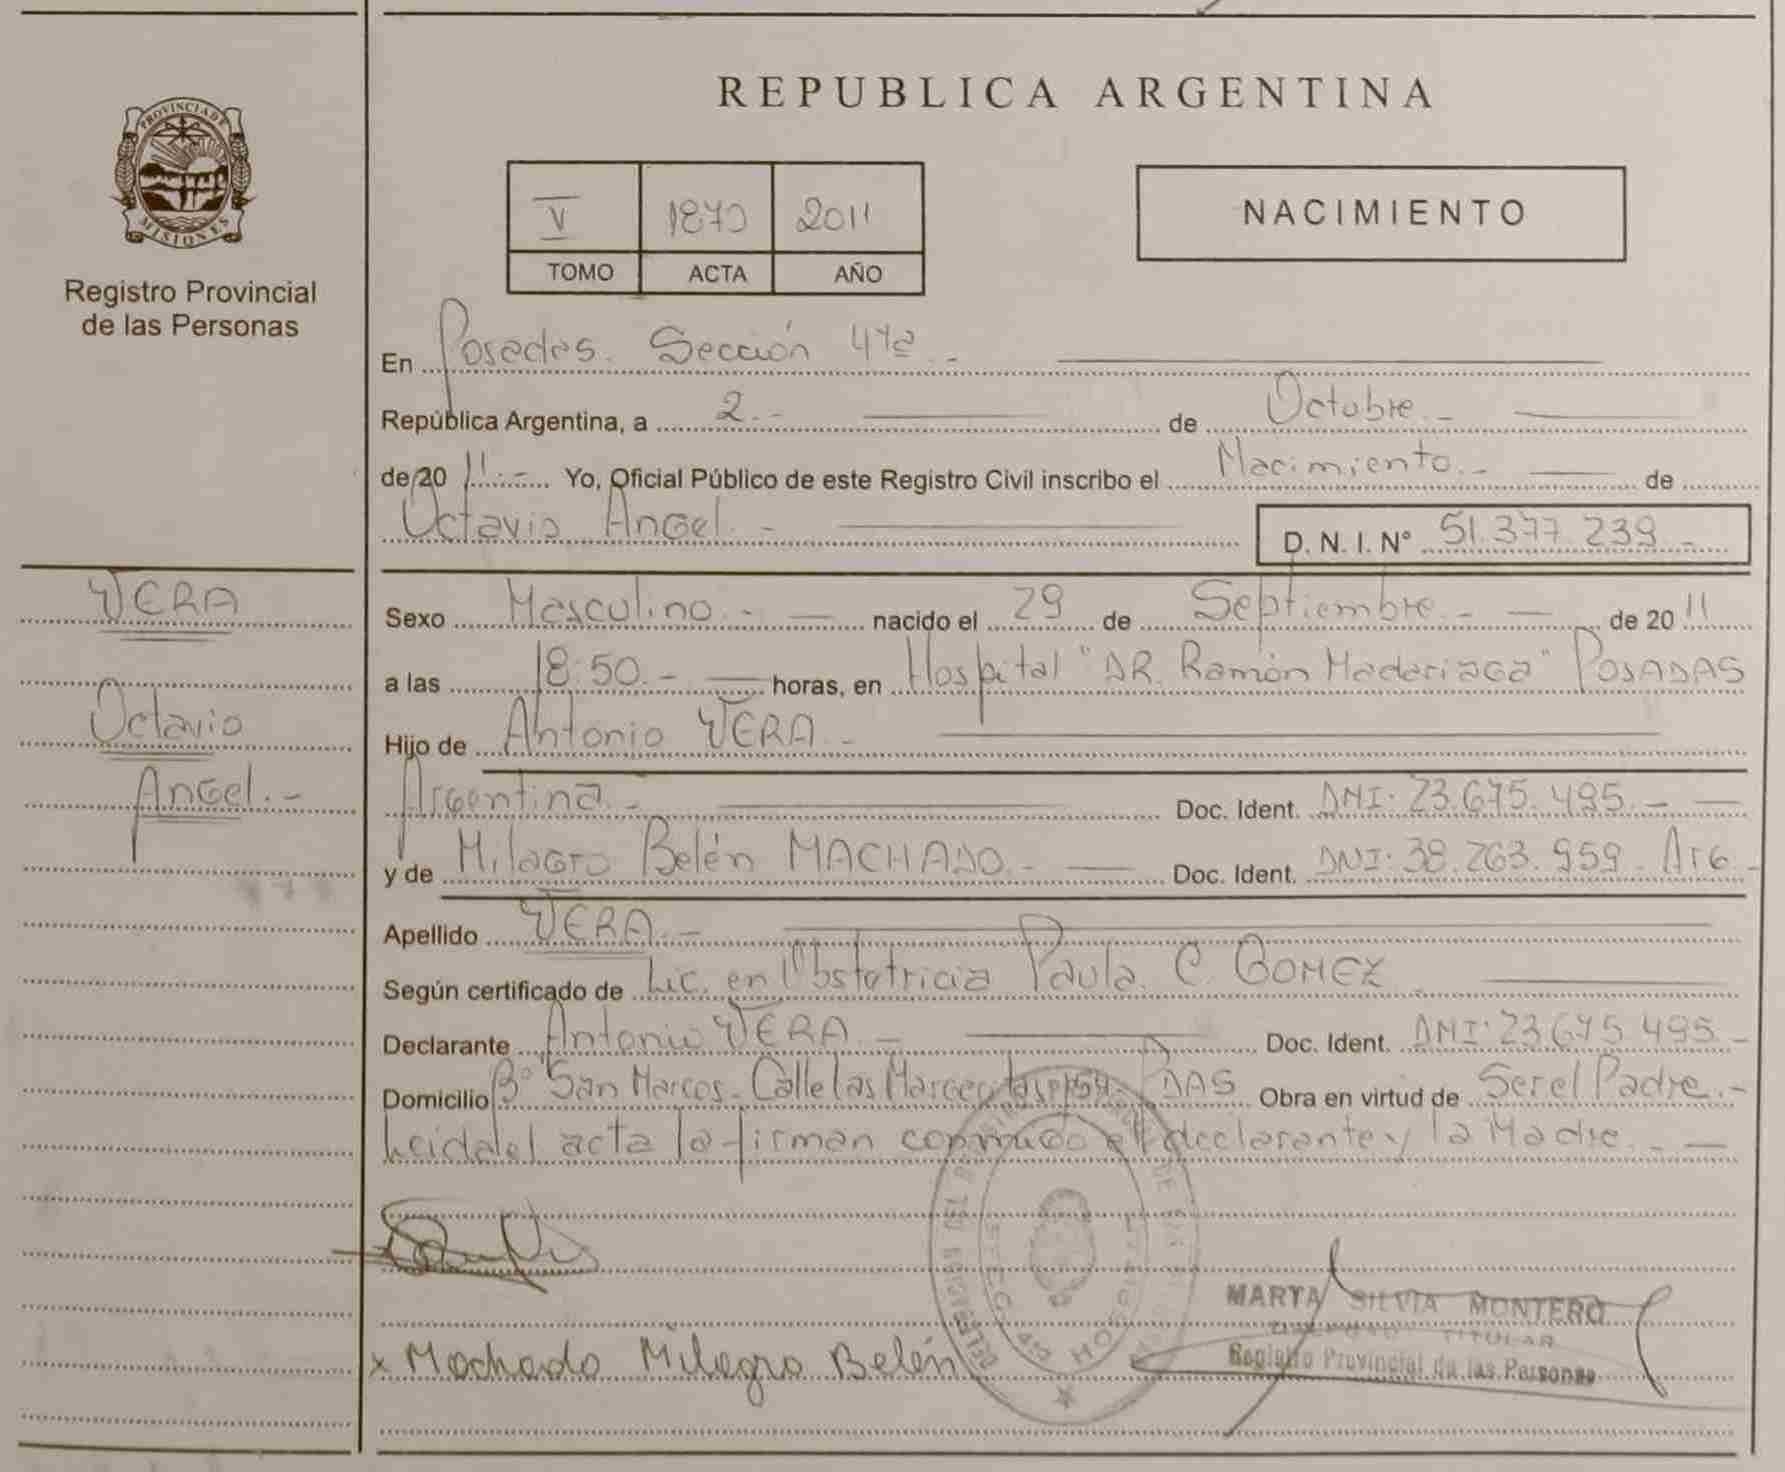 REPUBLICA ARGENTINA
PROVINCIA DE
MISIONES
Registro Provincial
de las Personas
V 1870 2011
TOMO ACTA AÑO
NACIMIENTO
En Posadas. Sección 4ta.-
República Argentina, a 2.- de Octubre.-
de 20 11.- Yo, Oficial Público de este Registro Civil inscribo el Nacimiento.- de
Octavio Angel.- D. N. I. N° 51.377.239.-
VERA
Octavio
Angel.-
Sexo Masculino.- nacido el 29 de Septiembre.- de 20 11
a las 18:50.- horas, en Hospital "DR. Ramón Madariaga" POSADAS
Hijo de Antonio VERA.-
Argentina.- Doc. Ident. DNI: 23.675.495.-
y de Milagro Belén MACHADO.- Doc. Ident. DNI: 38.263.959. Arg.-
Apellido VERA.-
Según certificado de Lic. en Obstetricia Paula C. GOMEZ
Declarante Antonio VERA.- Doc. Ident. DNI: 23.675.495.-
Domicilio B° San Marcos. Calle las DAS Obra en virtud de Ser el Padre.-
Leida el acta la firman conmigo el declarante y la Madre.-
x Machado Milagro Belén
MARTA SILVIA MONTERO
TITULAR
Registro Provincial de las Personas